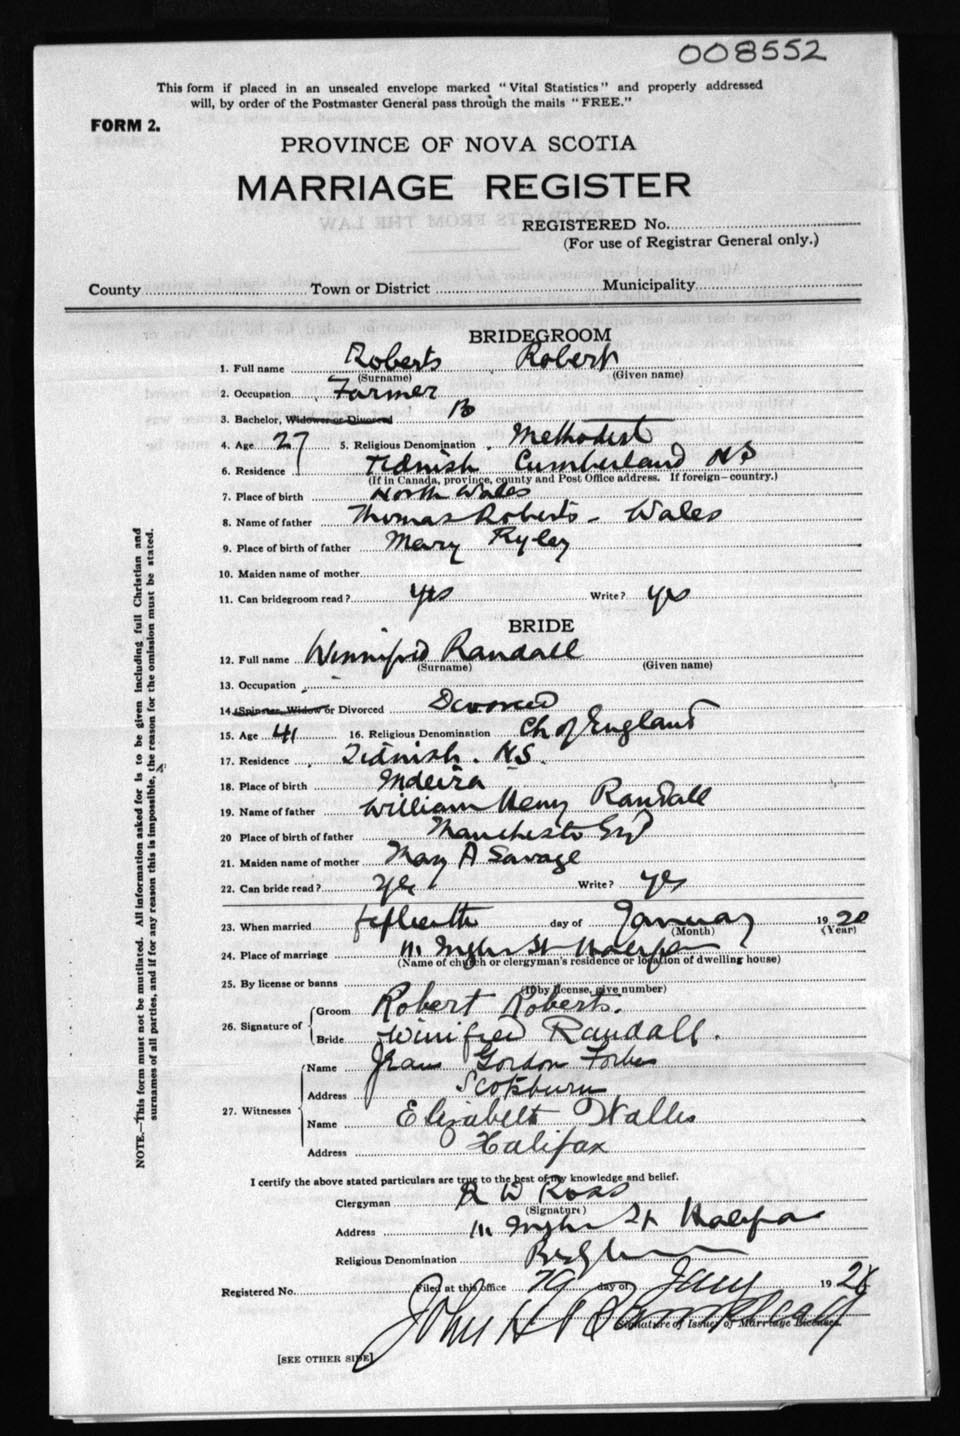 008552
This form if placed in an unsealed envelope marked "Vital Statistics" and properly addressed
will, by order of the Postmaster General pass through the mails "FREE."
FORM 2.
PROVINCE OF NOVA SCOTIA
MARRIAGE REGISTER
EXTRACTS FROM THE LAW
REGISTERED No.
(For use of Registrar General only.)
County Town or District Municipality
BRIDEGROOM
1. Full name Roberts Robert
(Surname) (Given name)
2. Occupation Farmer
3. Bachelor, Widower or Divorced B
4. Age 27 5. Religious Denomination Methodist
6. Residence Tidnish Cumberland NS
(If in Canada, province, county and Post Office address. If foreign—country.)
7. Place of birth North Wales
8. Name of father Thomas Roberts - Wales
9. Place of birth of father Mary Ryley
10. Maiden name of mother
11. Can bridegroom read? yes Write? yes
BRIDE
12. Full name Winnifred Randall
(Surname) (Given name)
13. Occupation
14. Spinster, Widow or Divorced Divorced
15. Age 41 16. Religious Denomination Ch of England
17. Residence Tidnish. NS.
18. Place of birth Madeira
19. Name of father William Henry Randall
20 Place of birth of father Manchester Eng
21. Maiden name of mother Mary A Savage
22. Can bride read? Yes Write? yes
23. When married fifteenth day of January 1920
(Month) (Year)
24. Place of marriage 111 Inglis St Halifax
(Name of church or clergyman's residence or location of dwelling house)
25. By license or banns
(If by license, give number)
26. Signature of Groom Robert Roberts.
Bride Winifred Randall.
27. Witnesses Name Gordon Forbes
Address Scotsburn
Name Elizabeth Wallis
Address Halifax
I certify the above stated particulars are true to the best of my knowledge and belief.
Clergyman R W Ross
(Signature)
Address 111 Inglis St Halifax
Religious Denomination
Registered No. Filed at this office day of Jany 19
John H
Signature of Issuer of Marriage Licenses.
[SEE OTHER SIDE]
NOTE.—This form must not be mutilated. All information asked for is to be given including full Christian and
surnames of all parties, and if for any reason this is impossible, the reason for the omission must be stated.